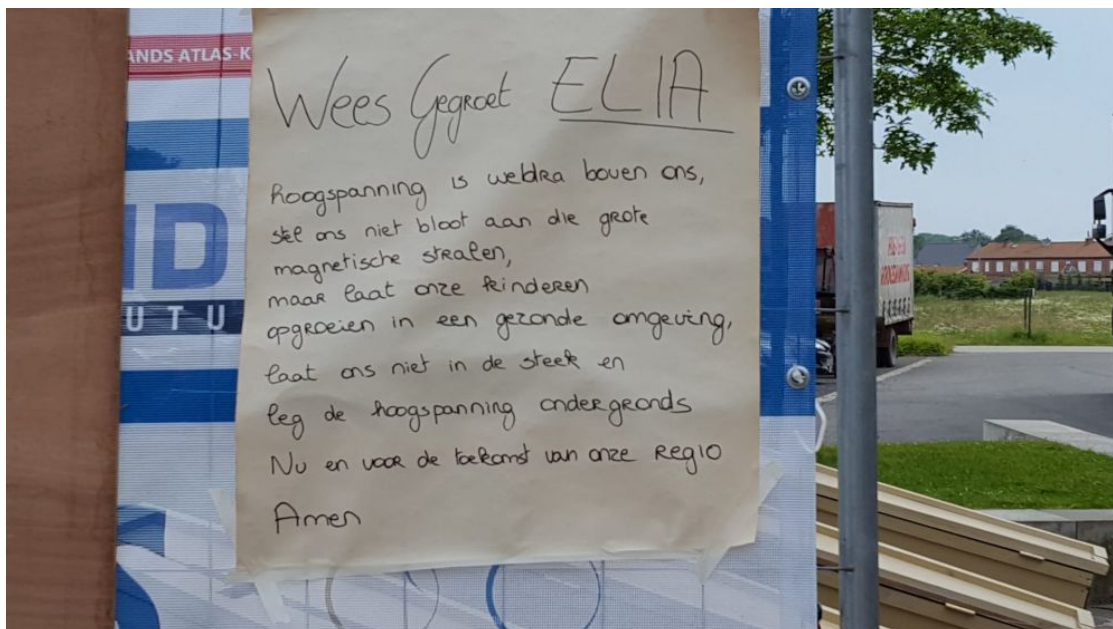 ANDS ATLAS-K
Wees Gegroet ELIA
hoogspanning is weldra boven ons,
stel ons niet bloot aan die grote
magnetische stralen,
maar laat onze kinderen
opgroeien in een gezonde omgeving,
laat ons niet in de steek en
leg de hoogspanning ondergronds
Nu en voor de toekomst van onze REGIO
Amen
ID
UTU